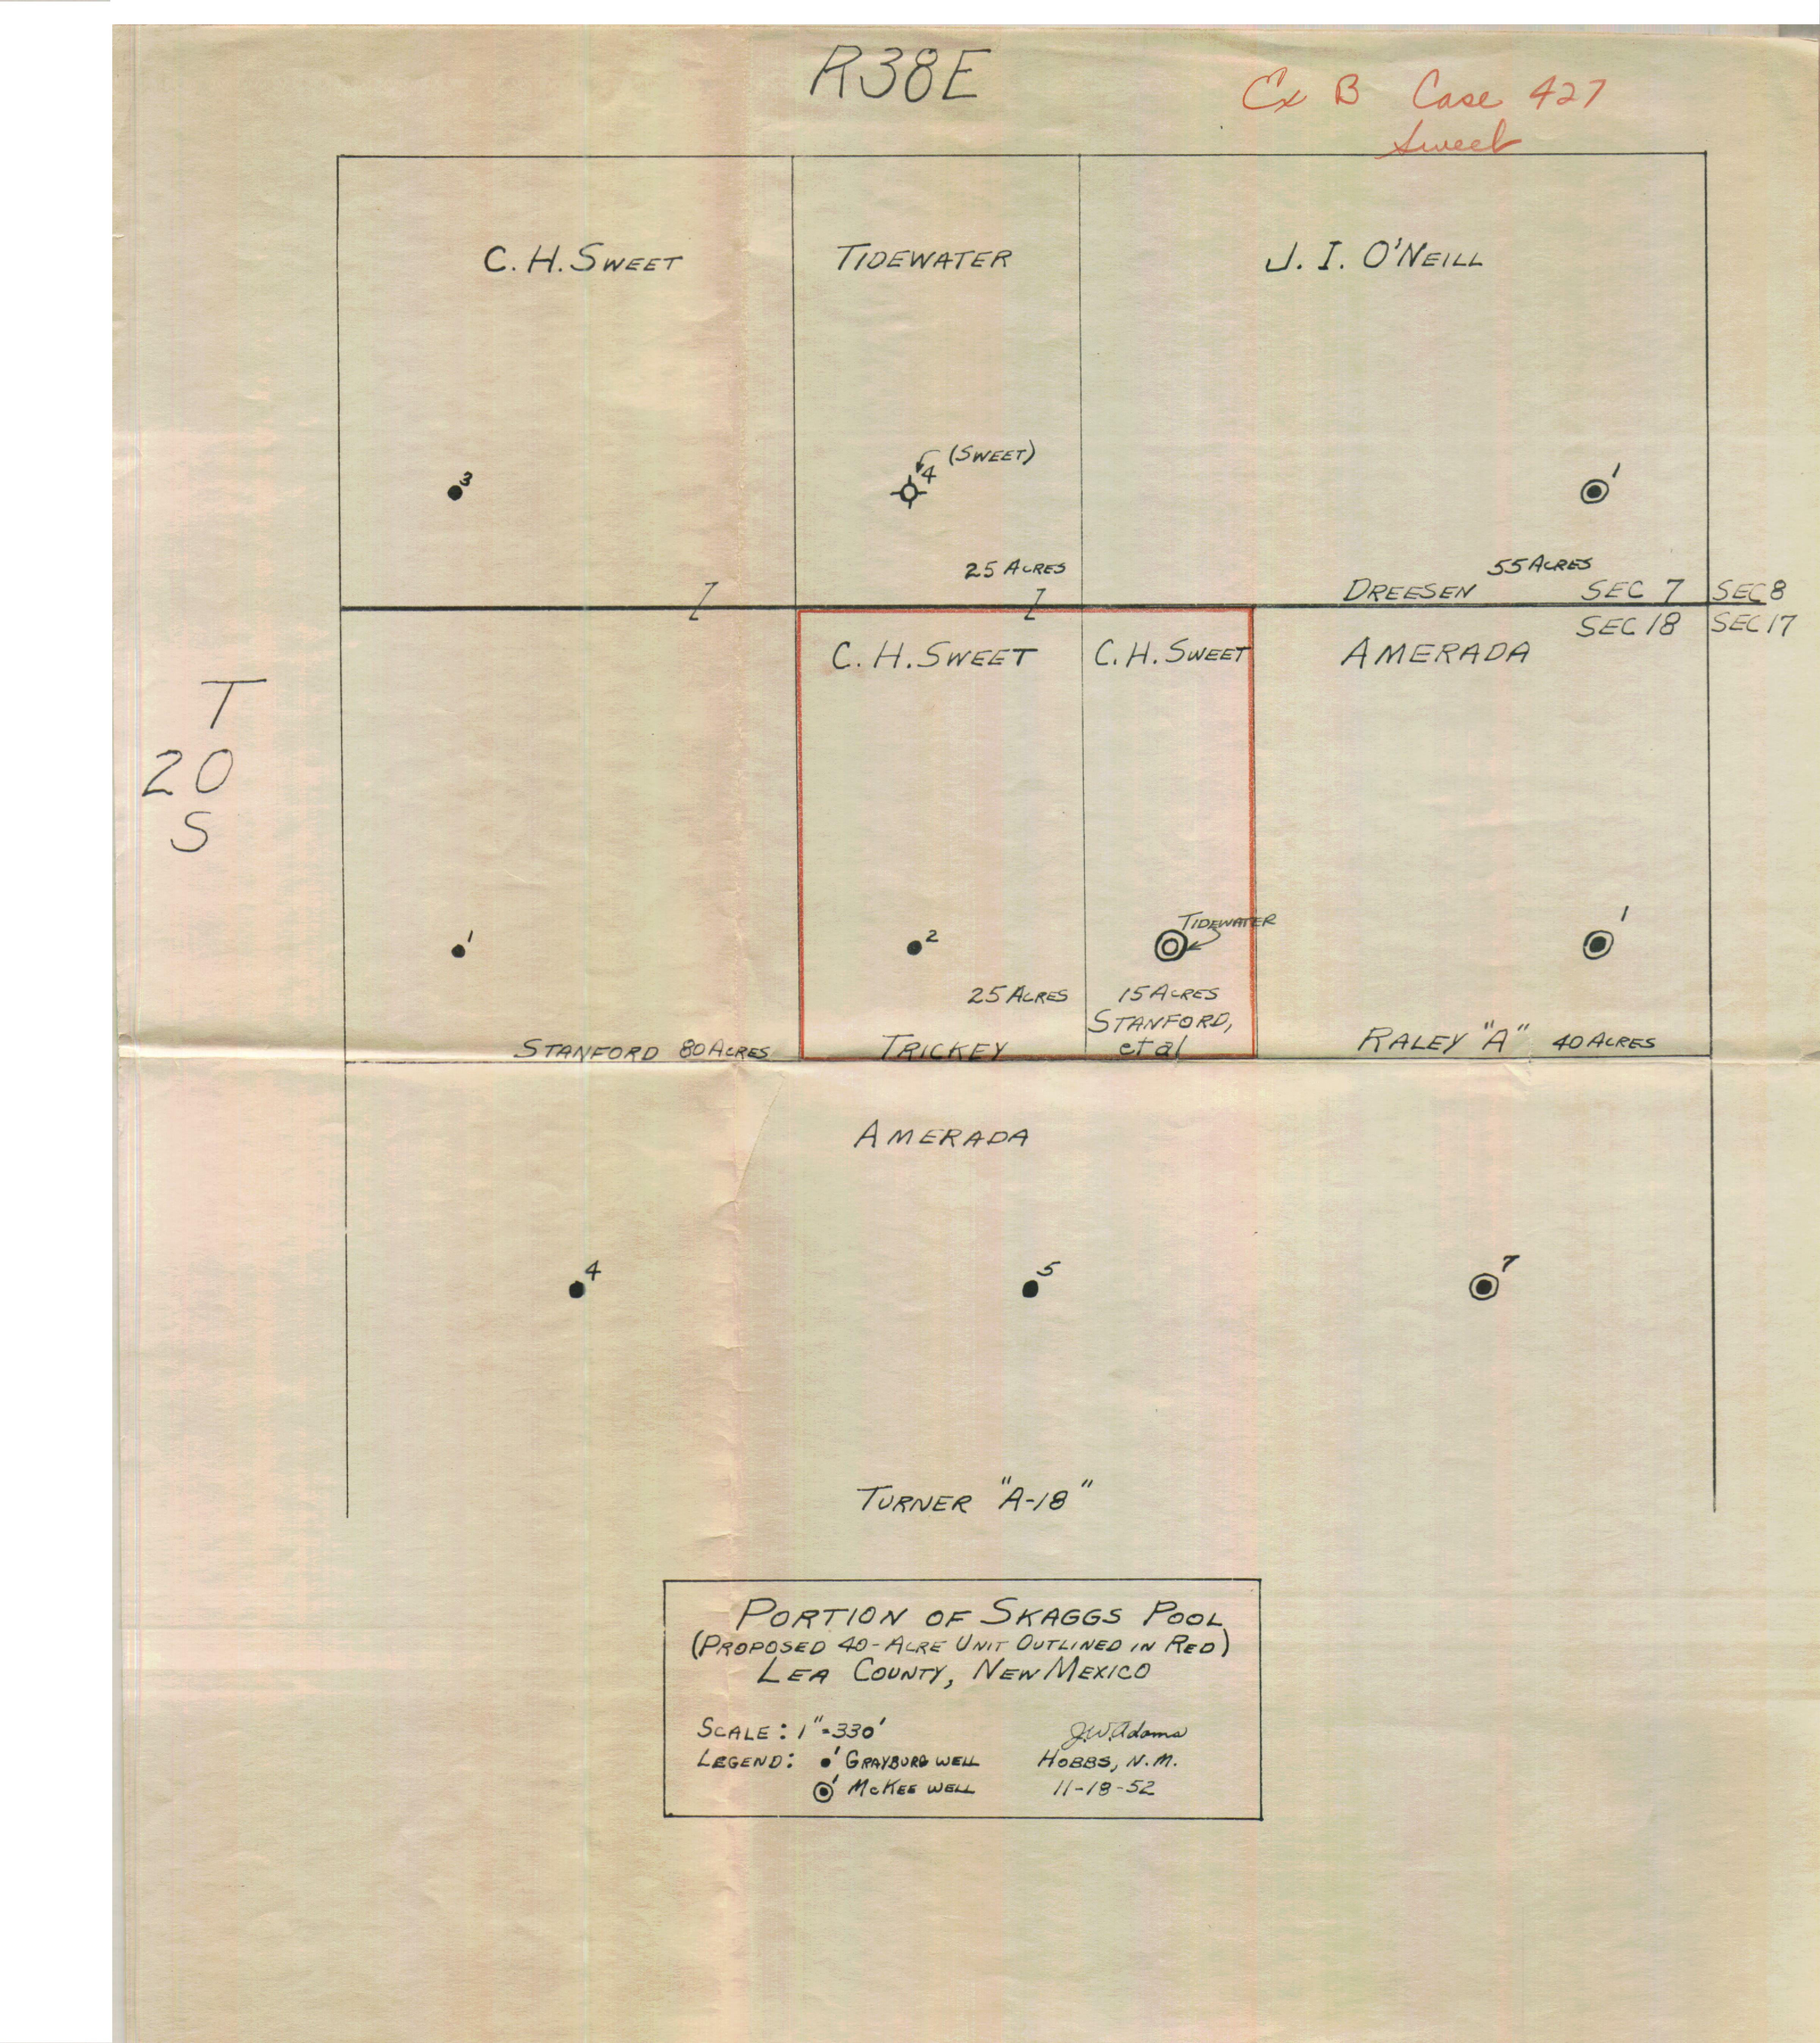 R38E
Ex B Case 427
Sweet
C. H. SWEET
TIDEWATER
J. I. O'NEILL
(SWEET)
3
4
1
25 ACRES
55 ACRES
DREESEN
SEC 7
SEC 8
SEC 18
SEC 17
C. H. SWEET
C. H. SWEET
AMERADA
T
20
S
TIDEWATER
1
2
1
25 ACRES
15 ACRES
STANFORD,
et al
STANFORD 80 ACRES
TRICKEY
RALEY "A" 40 ACRES
AMERADA
4
5
7
TURNER "A-18"
PORTION OF SKAGGS POOL
(PROPOSED 40-ACRE UNIT OUTLINED IN RED)
LEA COUNTY, NEW MEXICO
SCALE: 1"=330'
J.W. Adams
LEGEND: 1 GRAYBURG WELL
HOBBS, N.M.
1 McKEE WELL
11-18-52